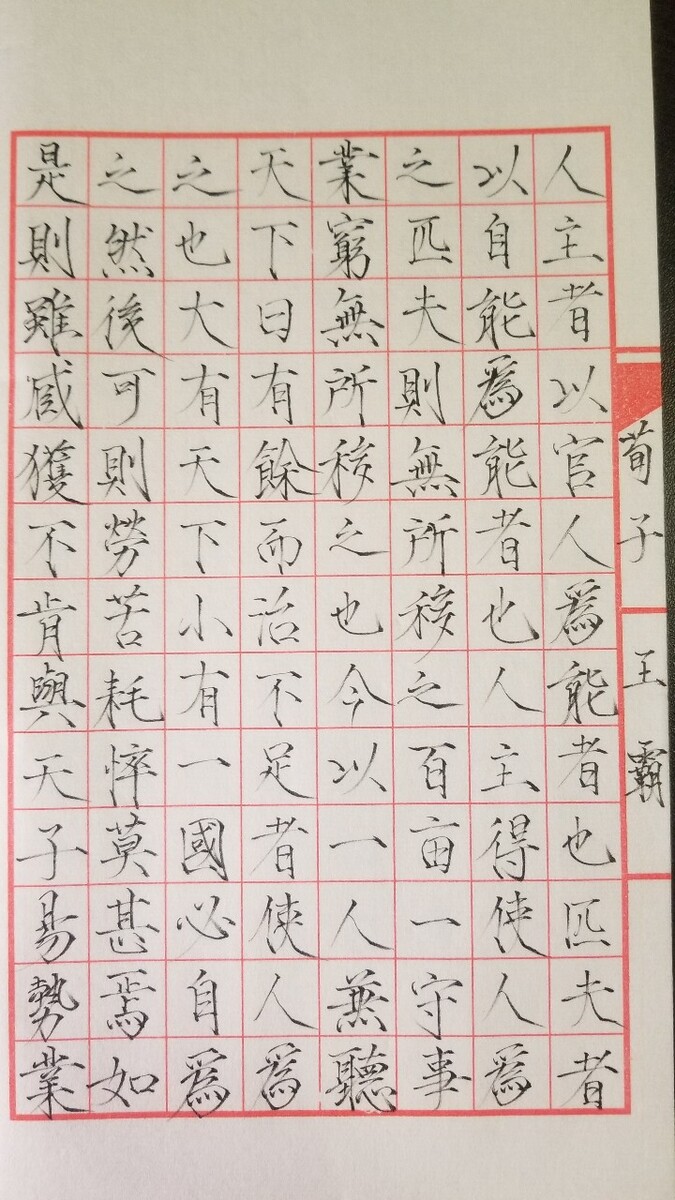 荀子 王霸
人主者以官人爲能者也匹夫者
以自能爲能者也人主得使人爲
之匹夫則無所移之百亩一守事
業窮無所移之也今以一人兼聽
天下日有餘而治不足者使人爲
之也大有天下小有一國必自爲
之然後可則勞苦耗悴莫甚焉如
是則雖臧獲不肯與天子易勢業